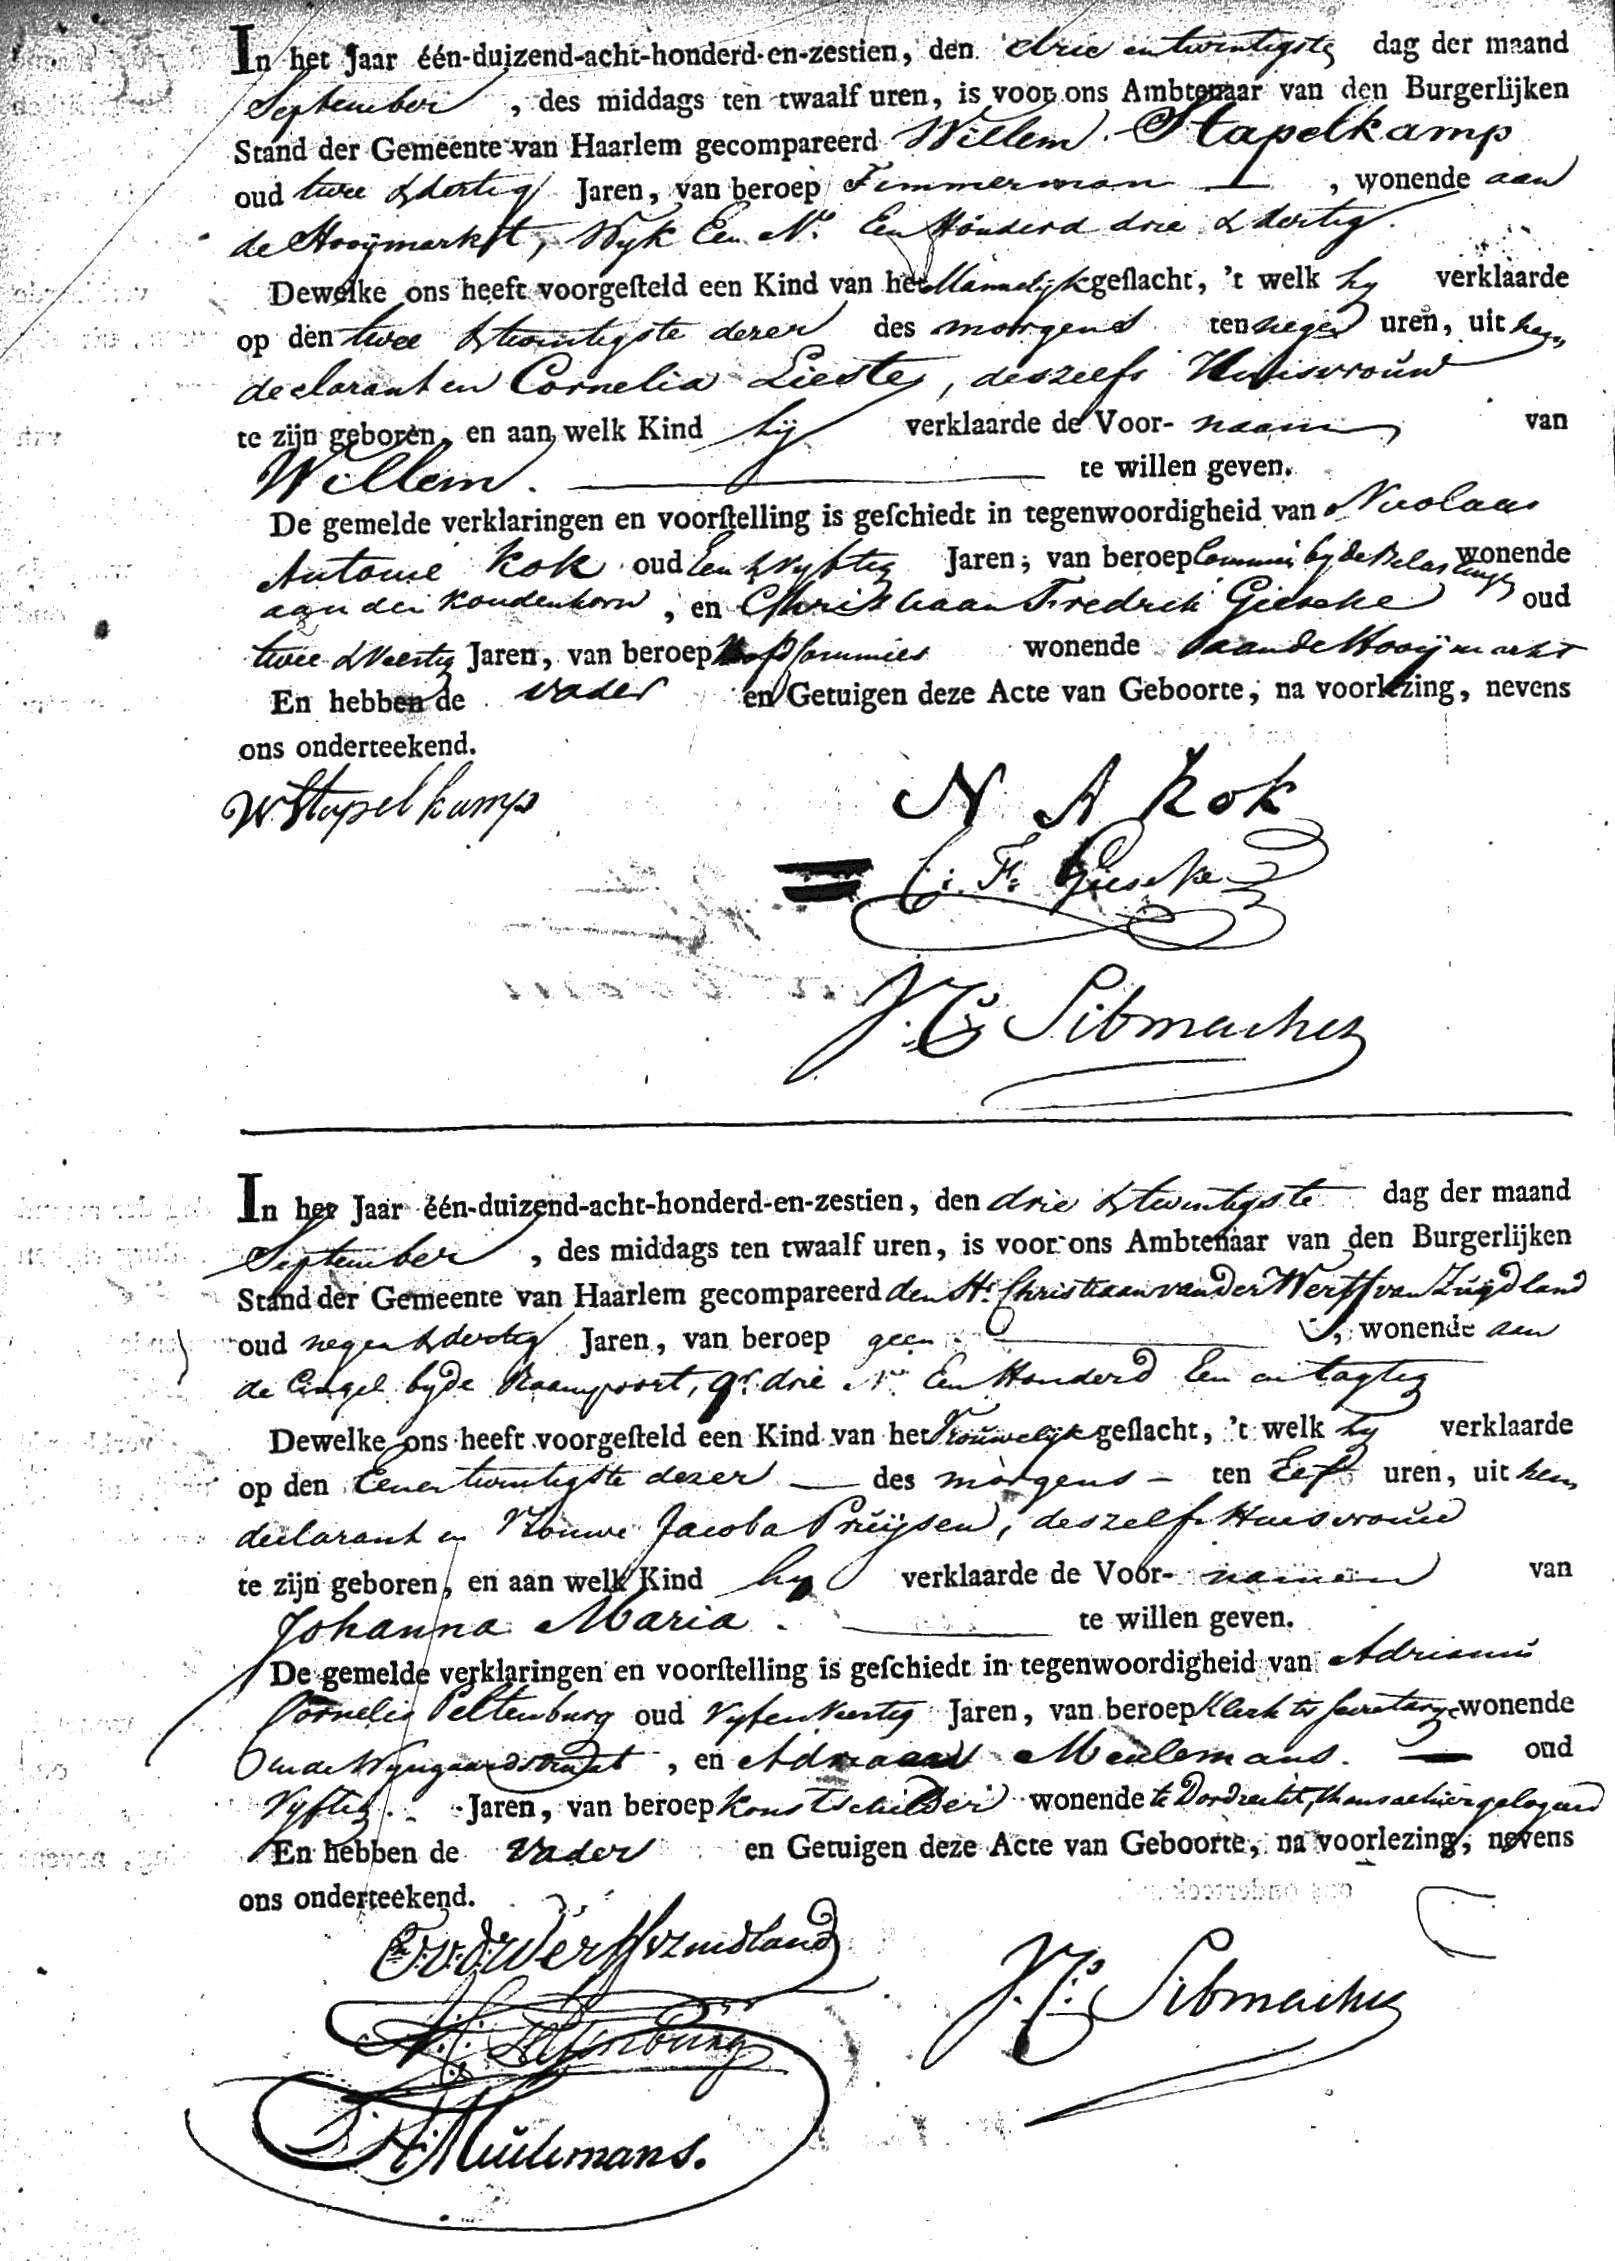 In het Jaar één-duizend-acht-honderd-en-zestien, den drie en twintigste dag der maand
September , des middags ten twaalf uren, is voor ons Ambtenaar van den Burgerlijken
Stand der Gemeente van Haarlem gecompareerd Willem Stapelkamp
oud twee & dertig Jaren, van beroep Timmerman , wonende aan
de Hooijmarkt, Wijk Een No. Een Honderd drie & dertig.
Dewelke ons heeft voorgesteld een Kind van het Mannelijk geslacht, 't welk hy verklaarde
op den twee & twintigste dezer des morgens ten negen uren, uit hem
declarant en Cornelia Lieste, deszelfs Huisvrouw
te zijn geboren, en aan welk Kind hij verklaarde de Voor- naam van
Willem. te willen geven.
De gemelde verklaringen en voorstelling is geschiedt in tegenwoordigheid van Nicolaas
Antonie Kok oud Een & vyftig Jaren; van beroep Commies by de Belastingen wonende
aan den Koudenhorn , en Christiaan Fredrik Giescke oud
twee & Veertig Jaren, van beroep Commies wonende aan de Hooijmarkt
En hebben de vader en Getuigen deze Acte van Geboorte, na voorlezing, nevens
ons onderteekend.
W Stapelkamp
N A Kok
C: F: Giescke
J. C. Sibmacher
In het Jaar één-duizend-acht-honderd-en-zestien, den drie & twintigste dag der maand
September , des middags ten twaalf uren, is voor ons Ambtenaar van den Burgerlijken
Stand der Gemeente van Haarlem gecompareerd den Hr. Christiaan van der Werff van Zuijdland
oud negen & dertig Jaren, van beroep geen , wonende aan
de Cingel byde Raampoort, qr. drie No. Een Honderd Een en tagtig
Dewelke ons heeft voorgesteld een Kind van het Vrouwelijk geslacht, 't welk hy verklaarde
op den Eenentwintigste dezer des morgens ten Elf uren, uit hem
declarant en Vrouwe Jacoba Pruijsen, deszelfs Huisvrouw
te zijn geboren, en aan welk Kind hy verklaarde de Voor- namen van
Johanna Maria. te willen geven.
De gemelde verklaringen en voorstelling is geschiedt in tegenwoordigheid van Adrianus
Cornelis Peltenburg oud Vyfenveertig Jaren, van beroep Klerk ter Secretary wonende
in de Wyngaardstraat , en Adriaan Meulemans. oud
Vyftig. Jaren, van beroep Konstschilder wonende te Dordrecht, thans alhier gelogeerd
En hebben de Vader en Getuigen deze Acte van Geboorte, na voorlezing, nevens
ons onderteekend.
C. v. d. Werff v Zuidland
J. C. Sibmacher
A. C. Peltenburg
A: Meulemans.